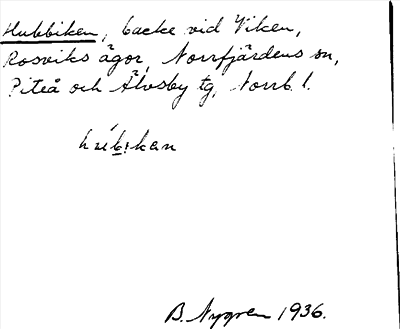 Hubbiken, backe vid Viken,
Rosviks ägor, Norrfjärdens sn,
Piteå och Älvsby tg, Norrb. l.
B. Nygren 1936.